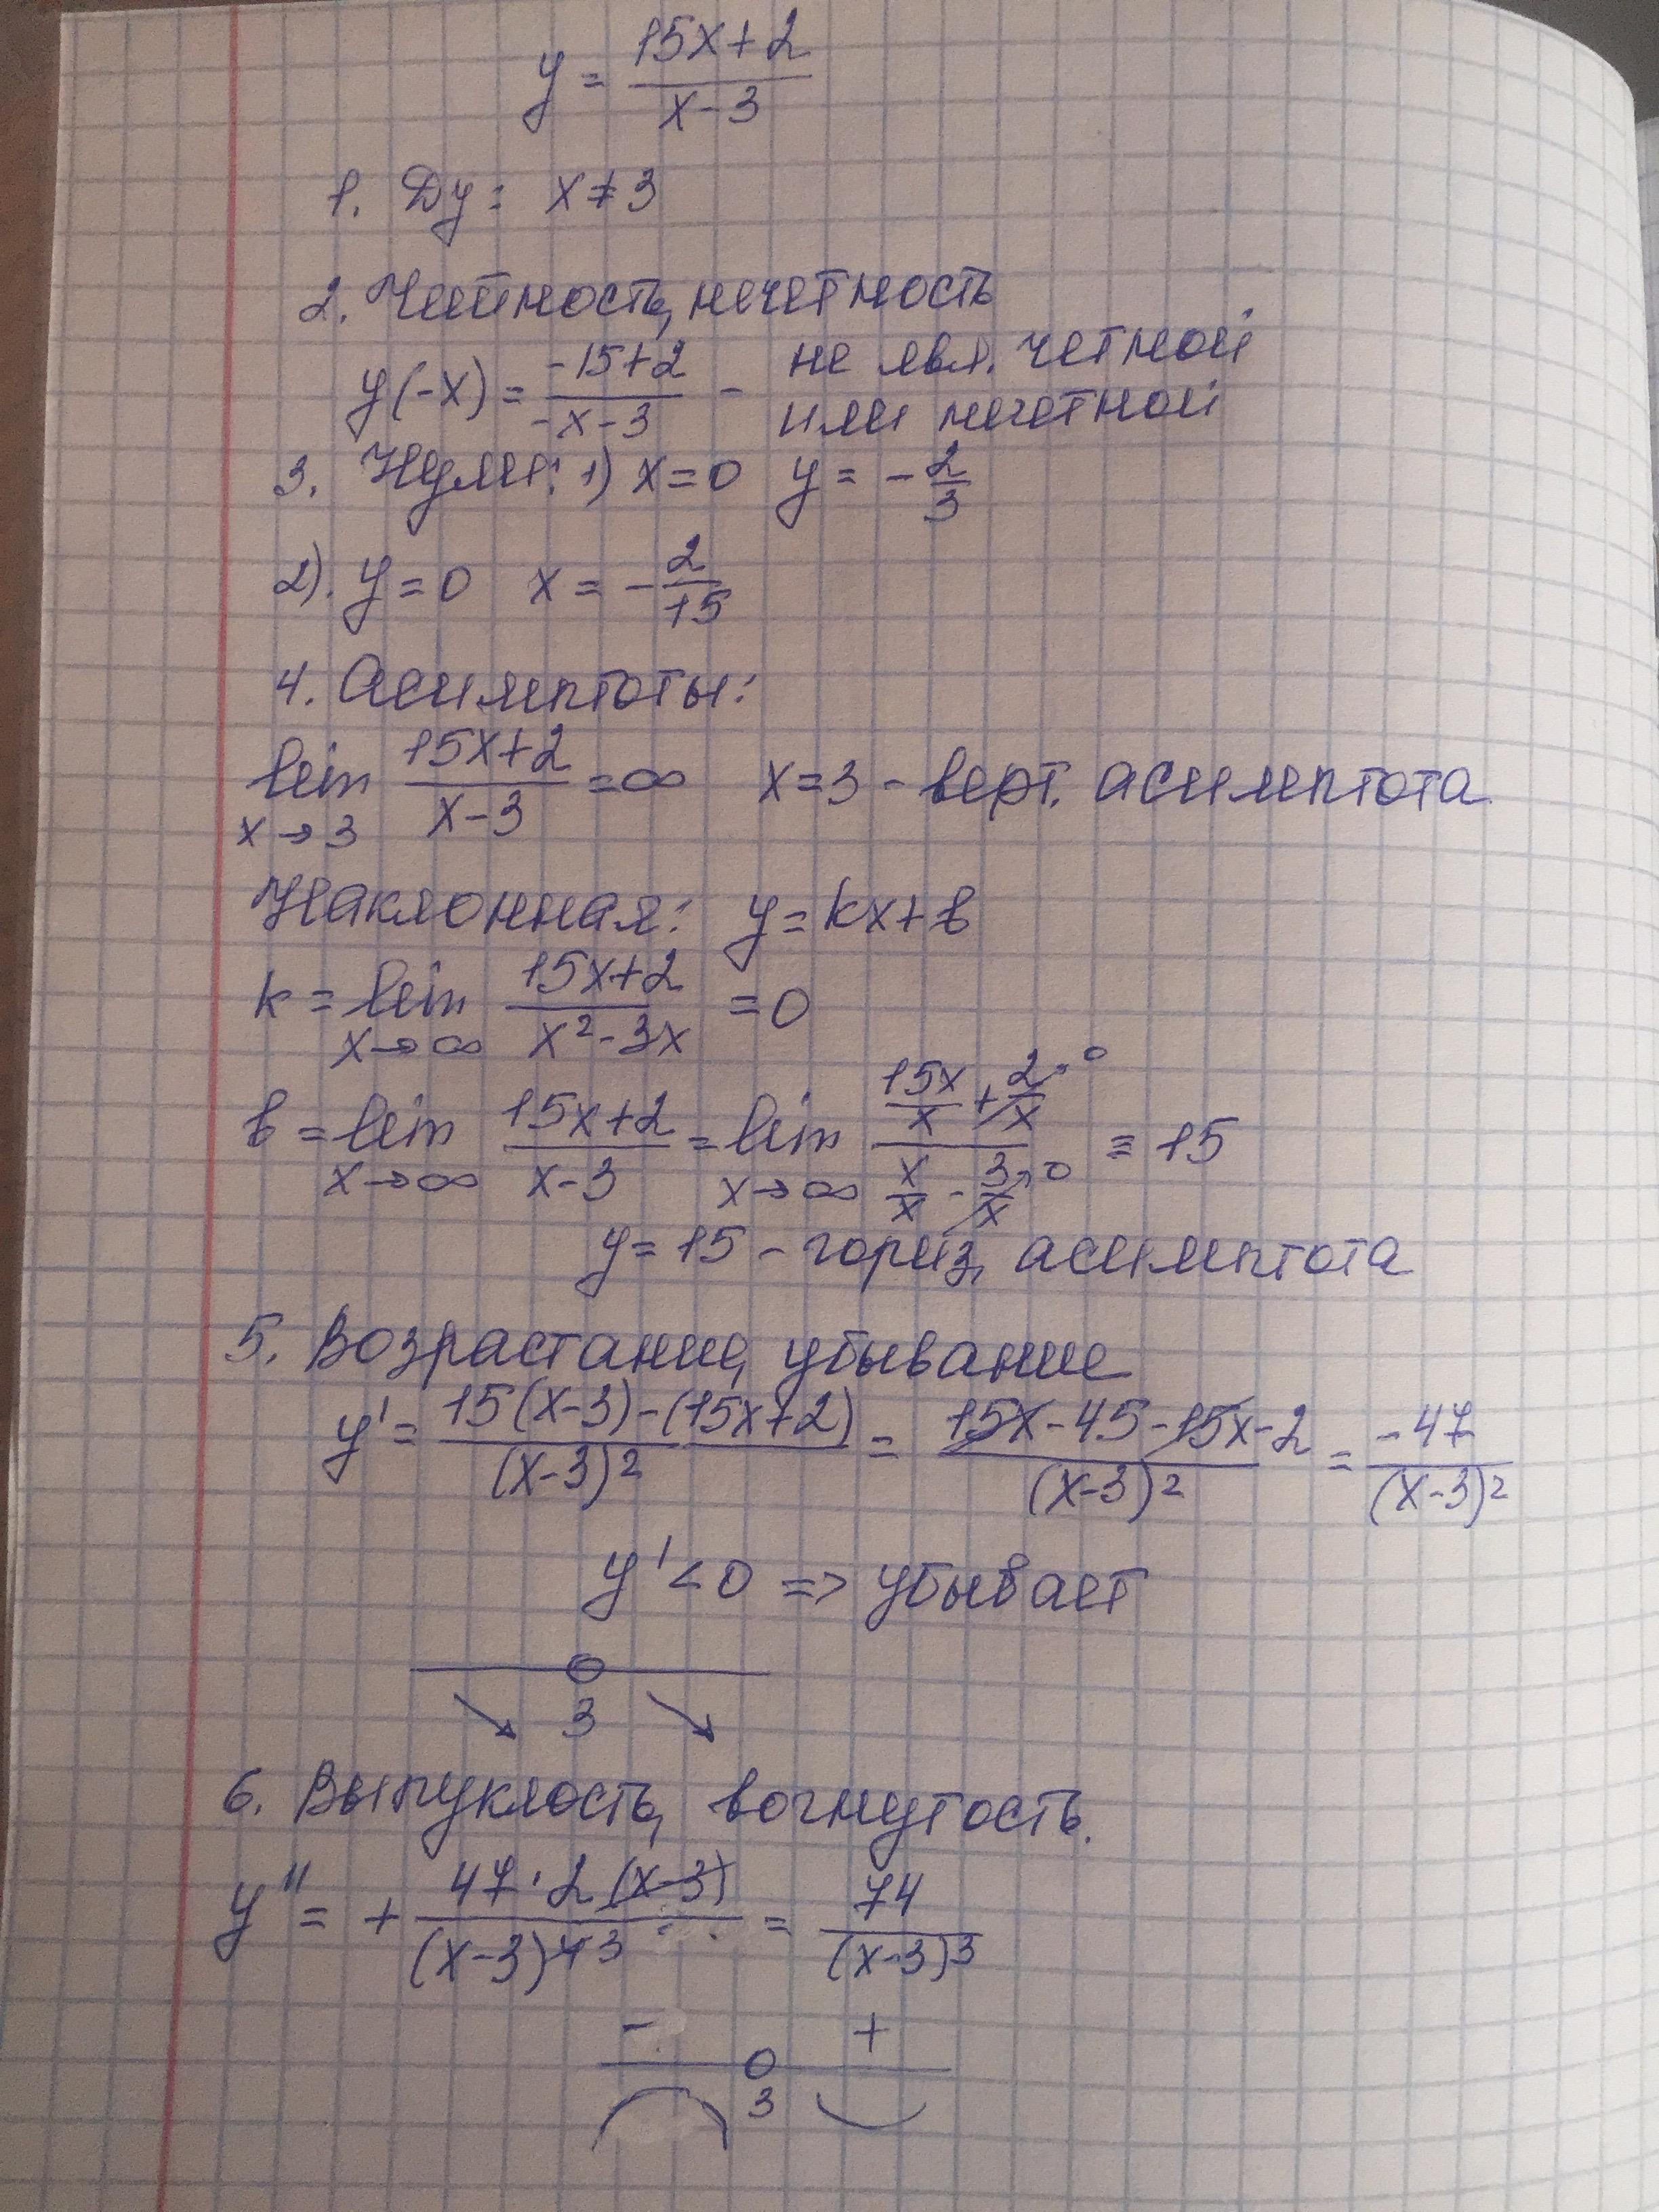 y = (15x+2)/(x-3)
1. Dy: x≠3
2. Четность, нечетность
y(-x) = (-15+2)/(-x-3) - не явл. четной или нечетной
3. Нули: 1) x=0 y = -2/3
2). y=0 x = -2/15
4. Асимптоты:
lim x→3 (15x+2)/(x-3) = ∞ x=3 - верт. асимптота
Наклонная: y=kx+b
k = lim x→∞ (15x+2)/(x²-3x) = 0
b = lim x→∞ (15x+2)/(x-3) = lim x→∞ (15x/x + 2/x→0)/(x/x - 3/x→0) = 15
y=15 - гориз. асимптота
5. Возрастание, убывание
y' = (15(x-3)-(15x+2))/(x-3)² = (15x-45-15x-2)/(x-3)² = -47/(x-3)²
y'<0 => убывает
3
6. Выпуклость, вогнутость.
y'' = + (47·2(x-3))/(x-3)⁴³ = 74/(x-3)³
- +
3